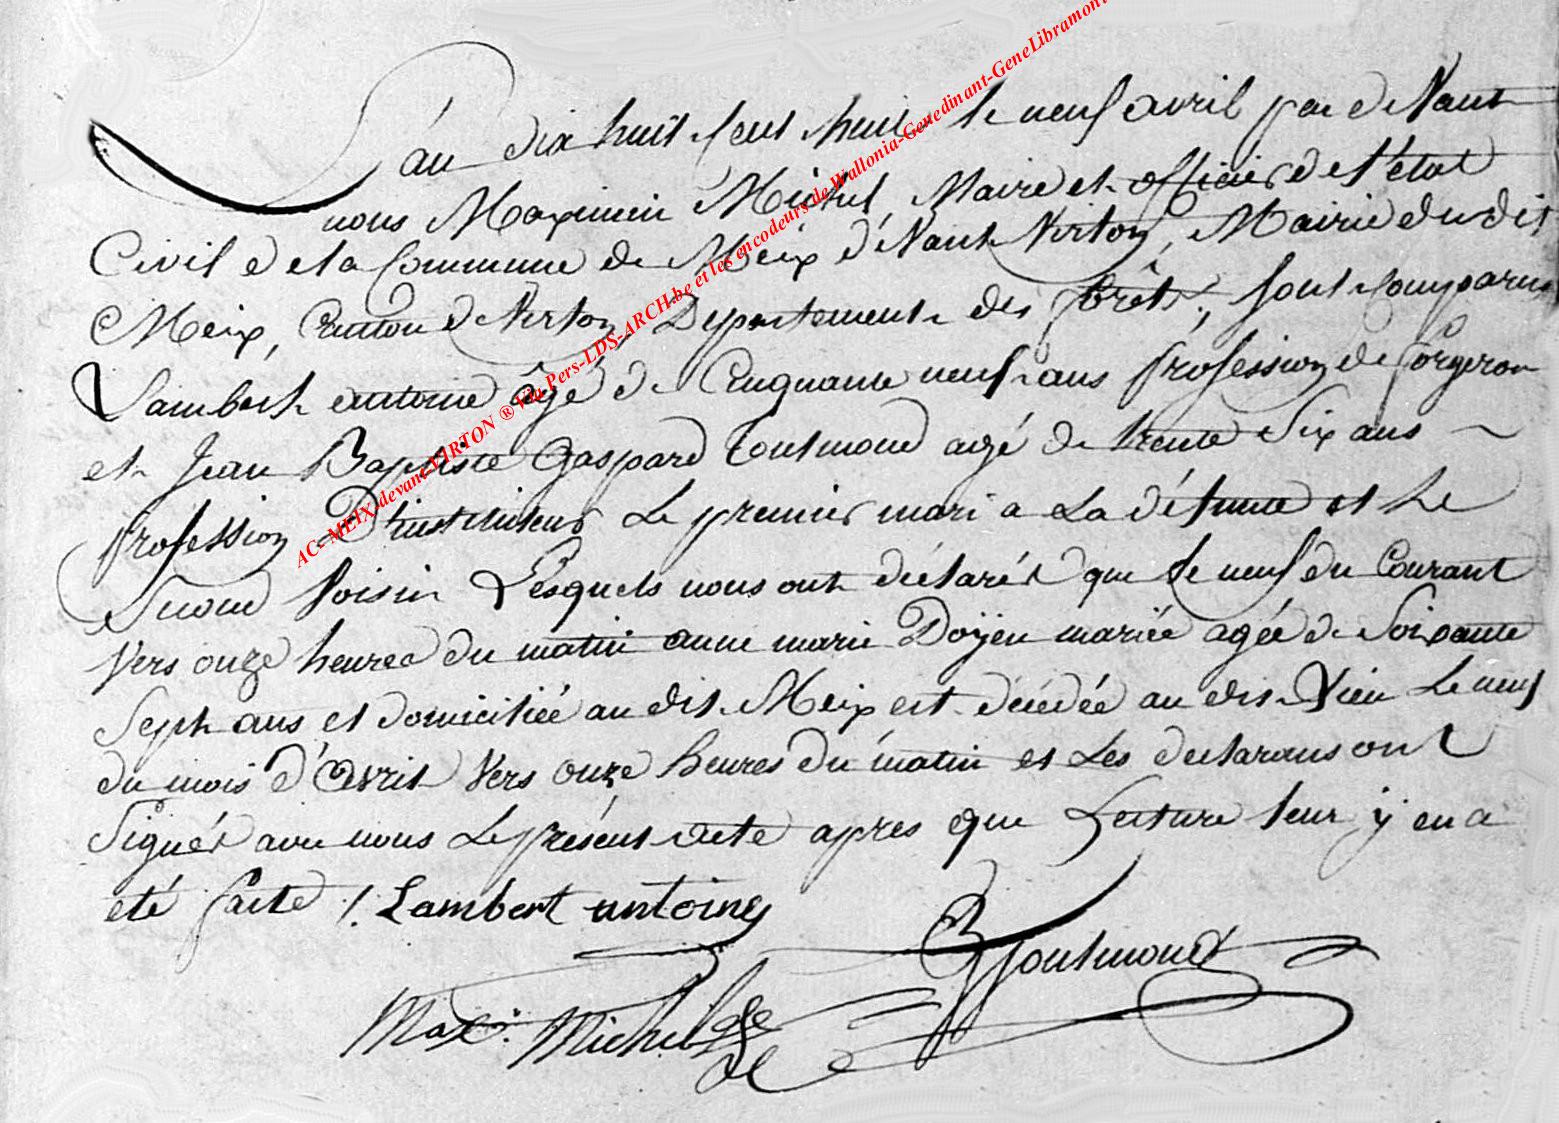 L'an dix huit cent huit le neuf avril par devant
nous Maximin Michel Maire et officier de l'état
Civil de la Commune de Meix devant Virton, Mairie du dit
Meix, Canton de Virton, Departement des forêts, sont comparus
Lambert antoine âgé de Cinquante neuf ans profession de forgeron
et Jean Baptiste Gaspard Toutmond agé de trente Six ans
profession D'instituteur Le premier mari a La défunte et Le
Second Voisin Lesquels nous ont déclarés que le neuf du Courant
Vers onze heures du matin anne marie Doÿen mariée agée de Soixante
Sept ans et domiciliée au dit Meix est décédée au dit Lieu Le neuf
du mois d'Avril Vers onze heures du matin et Les declarans ont
Signés avec nous Le présent acte apres que Lecture leur y en a
été faite /. Lambert antoine
Toutmond
Max: Michel
AC-MEIX-devant-VIRTON ® Via Pers-LDS-ARCH.be et les encodeurs de Wallonia-Genedinant-GeneLibramont